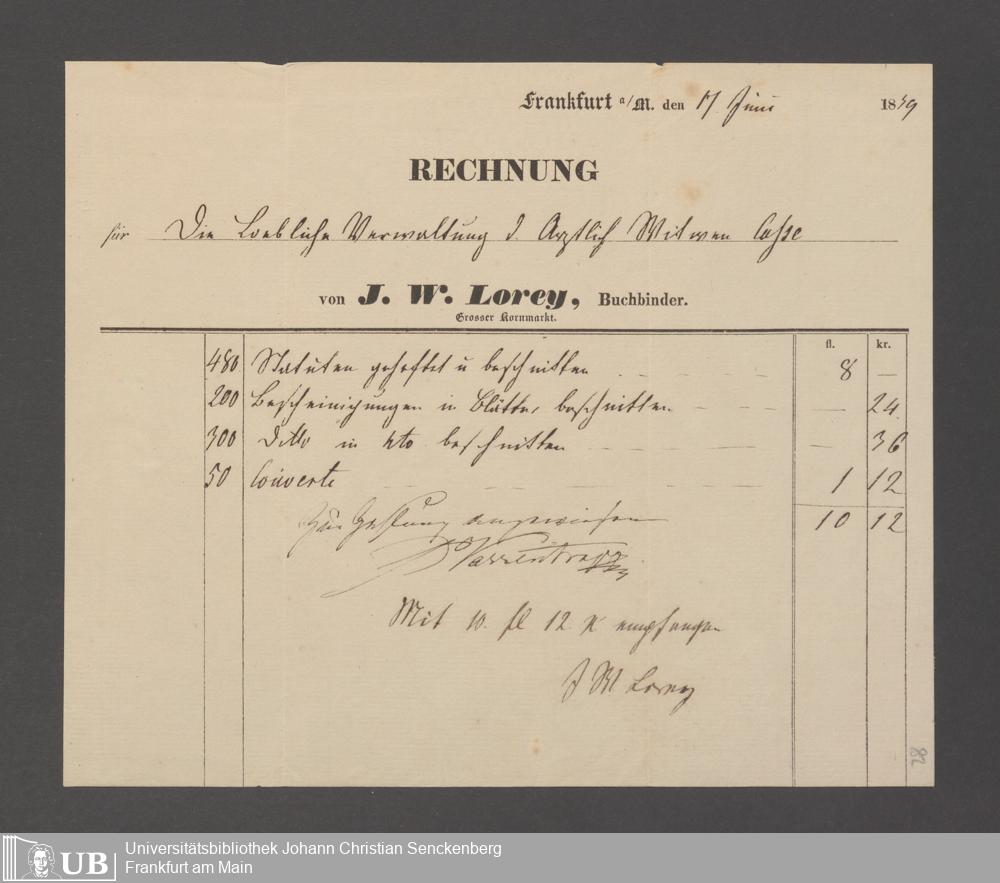 Frankfurt a/M. den 17. Juni 1859
RECHNUNG
für Die Loebliche Verwaltung d. Arztlich Witwen Casse
von J. W. Lorey, Buchbinder.
Grosser Kornmarkt.
fl. kr.
480 Statuten geheftet u beschnitten 8 —
200 Bescheinigungen in Blätter beschnitten — 24.
300 Ditto in 4to beschnitten — 36
50 Couverte 1 12
10 12
Zur Zahlung angewiesen
Varrentrapp
Mit 10. fl 12 K empfangen
J W Lorey
82
UB
Universitätsbibliothek Johann Christian Senckenberg
Frankfurt am Main